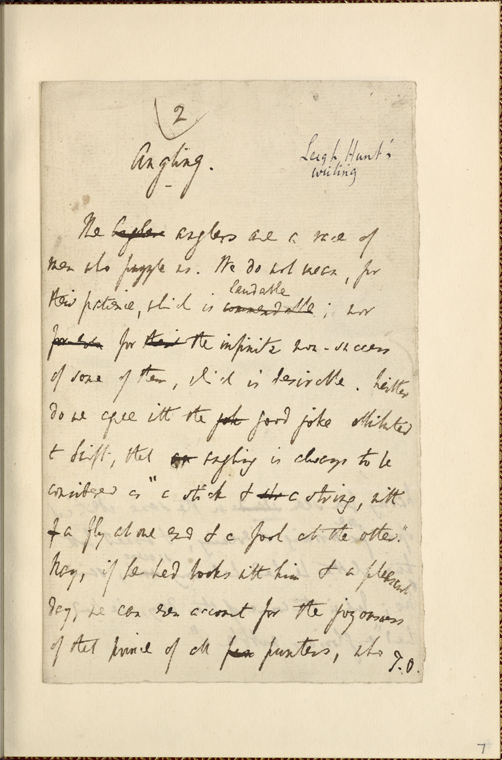 2
Angling.
Leigh Hunt's
writing
The anglers are a race of
men who puzzle us. We do not mean, for
laudable
their patience, which is commendable ; nor
for the infinite non-success
of some of them, which is desirable. Neither
do we agree with the good joke attributed
to Swift, that angling is always to be
considered as "a stick & a string, with
a fly at one end & a fool at the other."
Nay, if he had books with him & a pleasant
day, we can even account for the joyousness
of that prince of all punters, who
T.O.
7